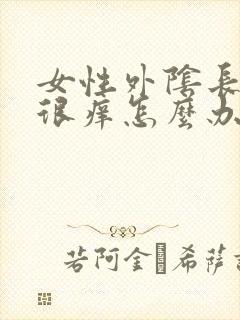 女性外陰長
很痒怎麼办
若阿金·希萨